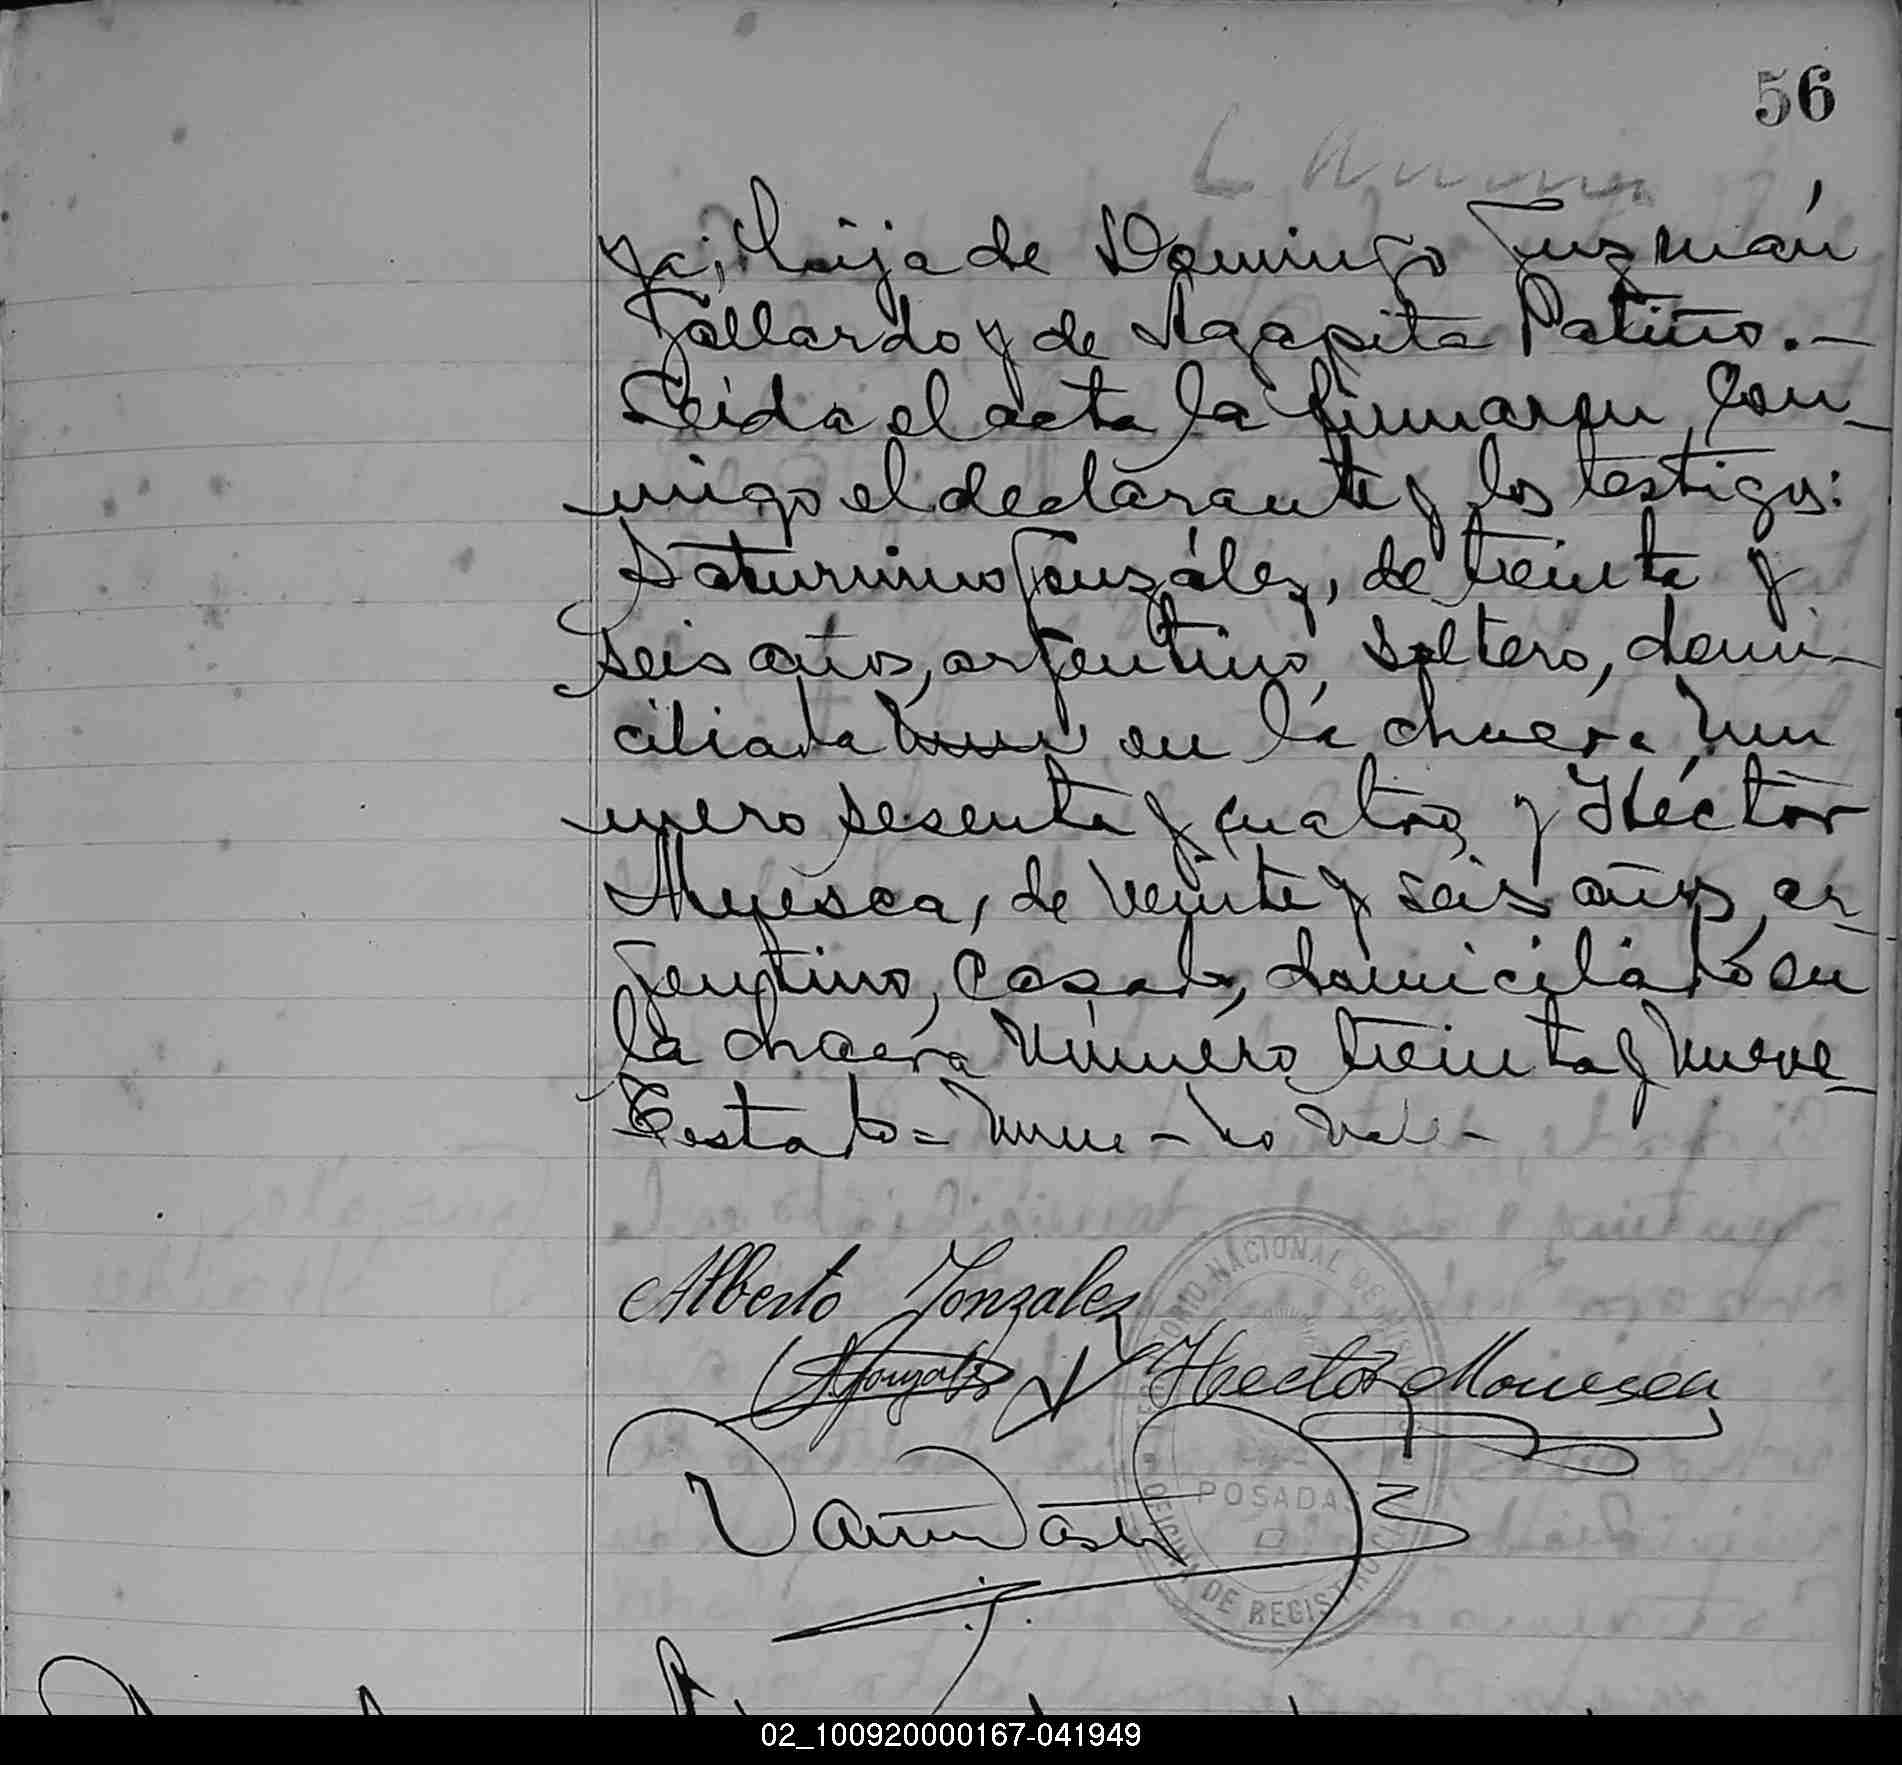 56
ya; hija de Domingo Guzmán
Gallardo y de Agapita Patiño.—
Leida el acta la firmaron, con-
migo el declarante y los testigos:
Saturnino González, de treinta y
seis años, argentino, soltero, domi-
ciliado nume en la chacra nú
mero sesenta y cuatro y Héctor
de veinte y seis años, ar-
gentino, casado, domiciliado en
la chacra número treinta y nueve
Testado = nume - no vale-
Alberto Gonzalez
S. Gonzalez
Hector
TERRITORIO NACIONAL DE MISIONES
POSADAS
OFICINA DE REGISTRO CIVIL
02_100920000167-041949